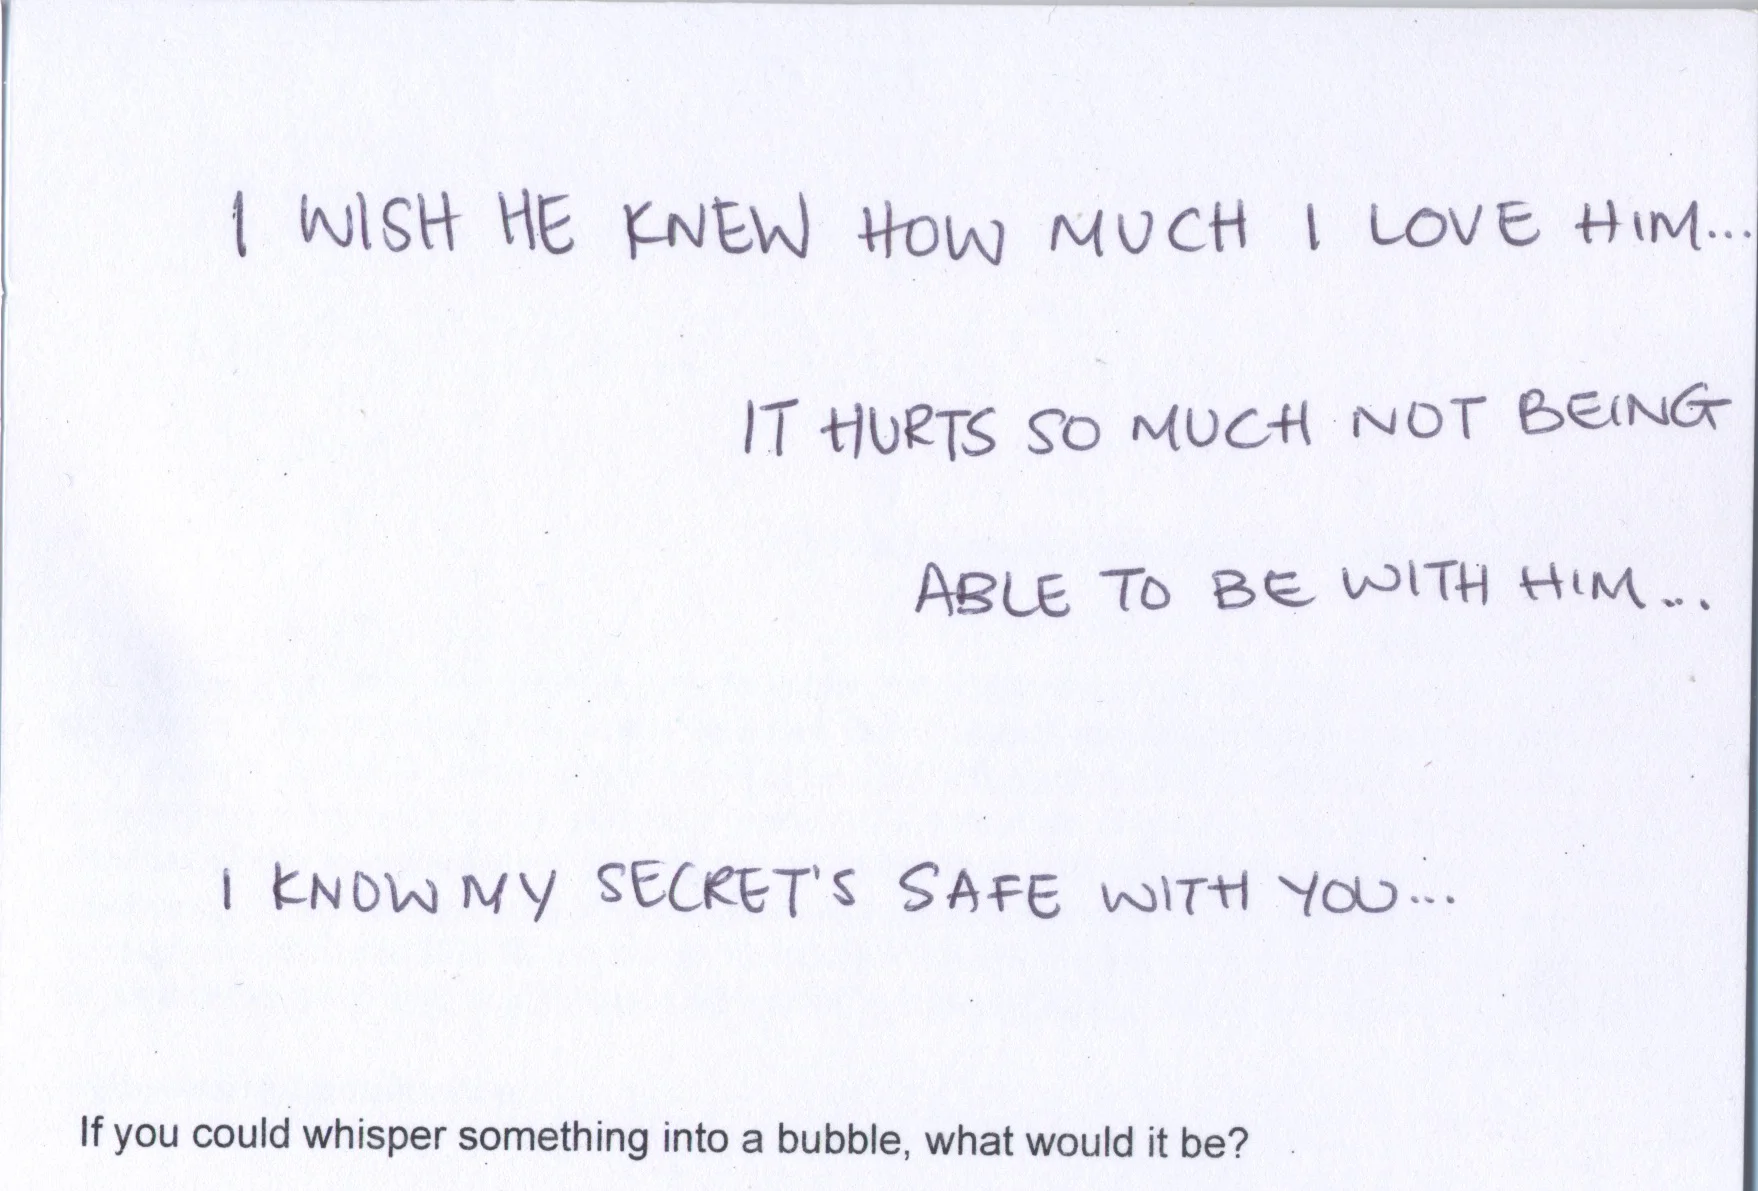 I WISH HE KNEW HOW MUCH I LOVE HIM...
IT HURTS SO MUCH NOT BEING
ABLE TO BE WITH HIM...
I KNOW MY SECRET'S SAFE WITH YOU...
If you could whisper something into a bubble, what would it be?